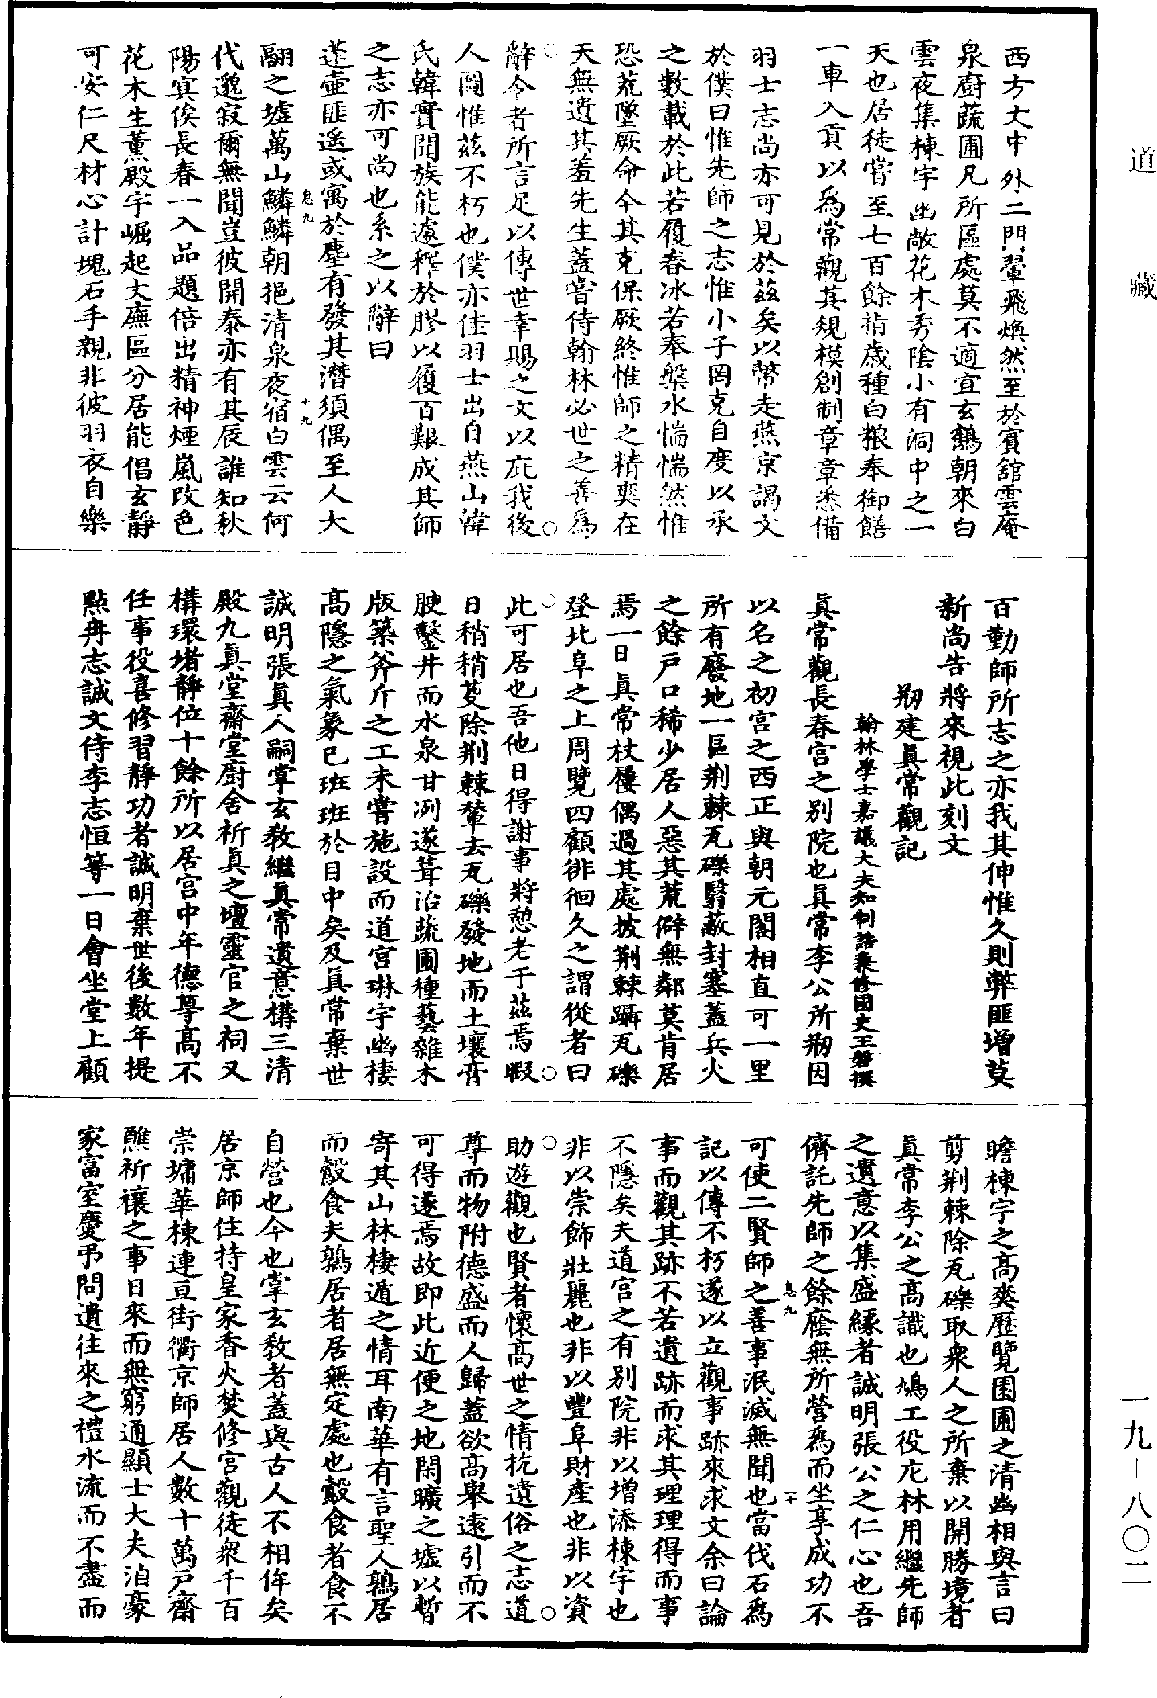 道藏
一九—八〇二
西方丈中外二門翬飛煥然至於賓舘雲庵
泉廚蔬圃凡所區處莫不適宜玄鶴朝來白
雲夜集棟宇幽敞花木秀陰小有洞中之一
天也居徒嘗至七百餘指歲種白粮奉御饍
一車入貢以爲常觀其規模創制章章悉備
羽士志尚亦可見於茲矣以幣走燕京謁文
於僕曰惟先師之志惟小子罔克自度以承
之數載於此若履春冰若奉槃水惴惴然惟
恐荒墜厥命今其克保厥終惟師之精爽在
天無遺其羞先生蓋嘗侍翰林必世之善爲
辭今者所言足以傳世幸賜之文以庇我後
人園惟茲不朽也僕亦佳羽士出自燕山韓
氏韓實閥族能遽釋於膠以履百艱成其師
之志亦可尚也系之以辭曰
蓬壺匪遙或寓於塵有發其潛須偶至人大
翮之墟萬山鱗鱗朝挹清泉夜宿白雲云何
卷九
十九
代邈寂爾無聞豈彼開泰亦有其辰誰知秋
陽寘俟長春一入品題倍出精神煙嵐改色
花木生薰殿宇崛起丈廡區分居能倡玄靜
可安仁尺材心計塊石手親非彼羽衣自樂
百勤師所志之亦我其伸惟久則弊匪增莫
新尚告將來視此刻文
剏建真常觀記
翰林學士嘉議大夫知制誥兼修國史王磐撰
眞常觀長春宫之别院也眞常李公所剏因
以名之初宫之西正與朝元閣相直可一里
所有廢地一區荆棘瓦礫翳蔽封塞蓋兵火
之餘戸口稀少居人惡其荒僻無鄰莫肯居
焉一日眞常杖屨偶過其處披荆棘躡瓦礫
登北阜之上周覽四顧徘徊久之謂從者曰
此可居也吾他日得謝事將憩老于茲焉暇
日稍稍芟除荆棘輦去瓦礫發地而土壤膏
腴鑿井而水泉甘冽遂葺治蔬圃種藝雜木
版築斧斤之工未嘗施設而道宫琳宇幽棲
高隱之氣象已班班於目中矣及眞常棄世
誠明張眞人嗣掌玄教繼眞常遺意構三清
殿九眞堂齋堂廚舍祈眞之壇靈官之祠又
構環堵靜位十餘所以居宫中年德尊高不
任事役喜修習靜功者誠明棄世後數年提
㸃舟志誠文侍李志恒等一日會坐堂上顧
瞻棟宇之高爽歷覽園圃之清幽相與言曰
剪荆棘除瓦礫取衆人之所棄以開勝境者
眞常李公之高識也鳩工役庀林用繼先師
之遺意以集盛緣者誠明張公之仁心也吾
儕託先師之餘廕無所營爲而坐享成功不
卷九
二十
可使二賢師之善事泯滅無聞也當伐石爲
記以傳不朽遂以立觀事跡來求文余曰論
事而觀其跡不若遺跡而求其理理得而事
不隱矣夫道宫之有别院非以增添棟宇也
非以崇飾壯麗也非以豐阜財產也非以資
助遊觀也賢者懷高世之情抗遺俗之志道
尊而物附德盛而人歸蓋欲高舉遠引而不
可得遂焉故即此近便之地閑曠之墟以暫
寄其山林棲遁之情耳南華有言聖人鶉居
而鷇食夫鶉居者居無定處也鷇食者食不
自營也今也掌玄教者蓋與古人不相侔矣
居京師住持皇家香火焚修宫觀徒衆千百
崇墉華棟連亘街衢京師居人數十萬戸齋
醮祈禳之事日來而無窮通顯士大夫洎豪
家富室慶弔問遺往來之禮水流而不盡而